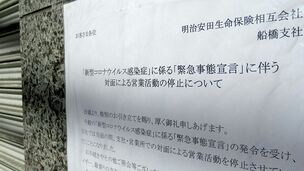 お客さま各位
明治安田生命保険相互会
船橋支社
「新型コロナウイルス感染症」に係る「緊急事態宣言」に伴う
対面による営業活動の停止について
格別のお引き立てを賜り、厚く御礼申しあげます。
「新型コロナウイルス感染症」に係る「緊急事態宣言」の発令を受け、
の間、支社・営業所での対面による営業活動を停止させてい